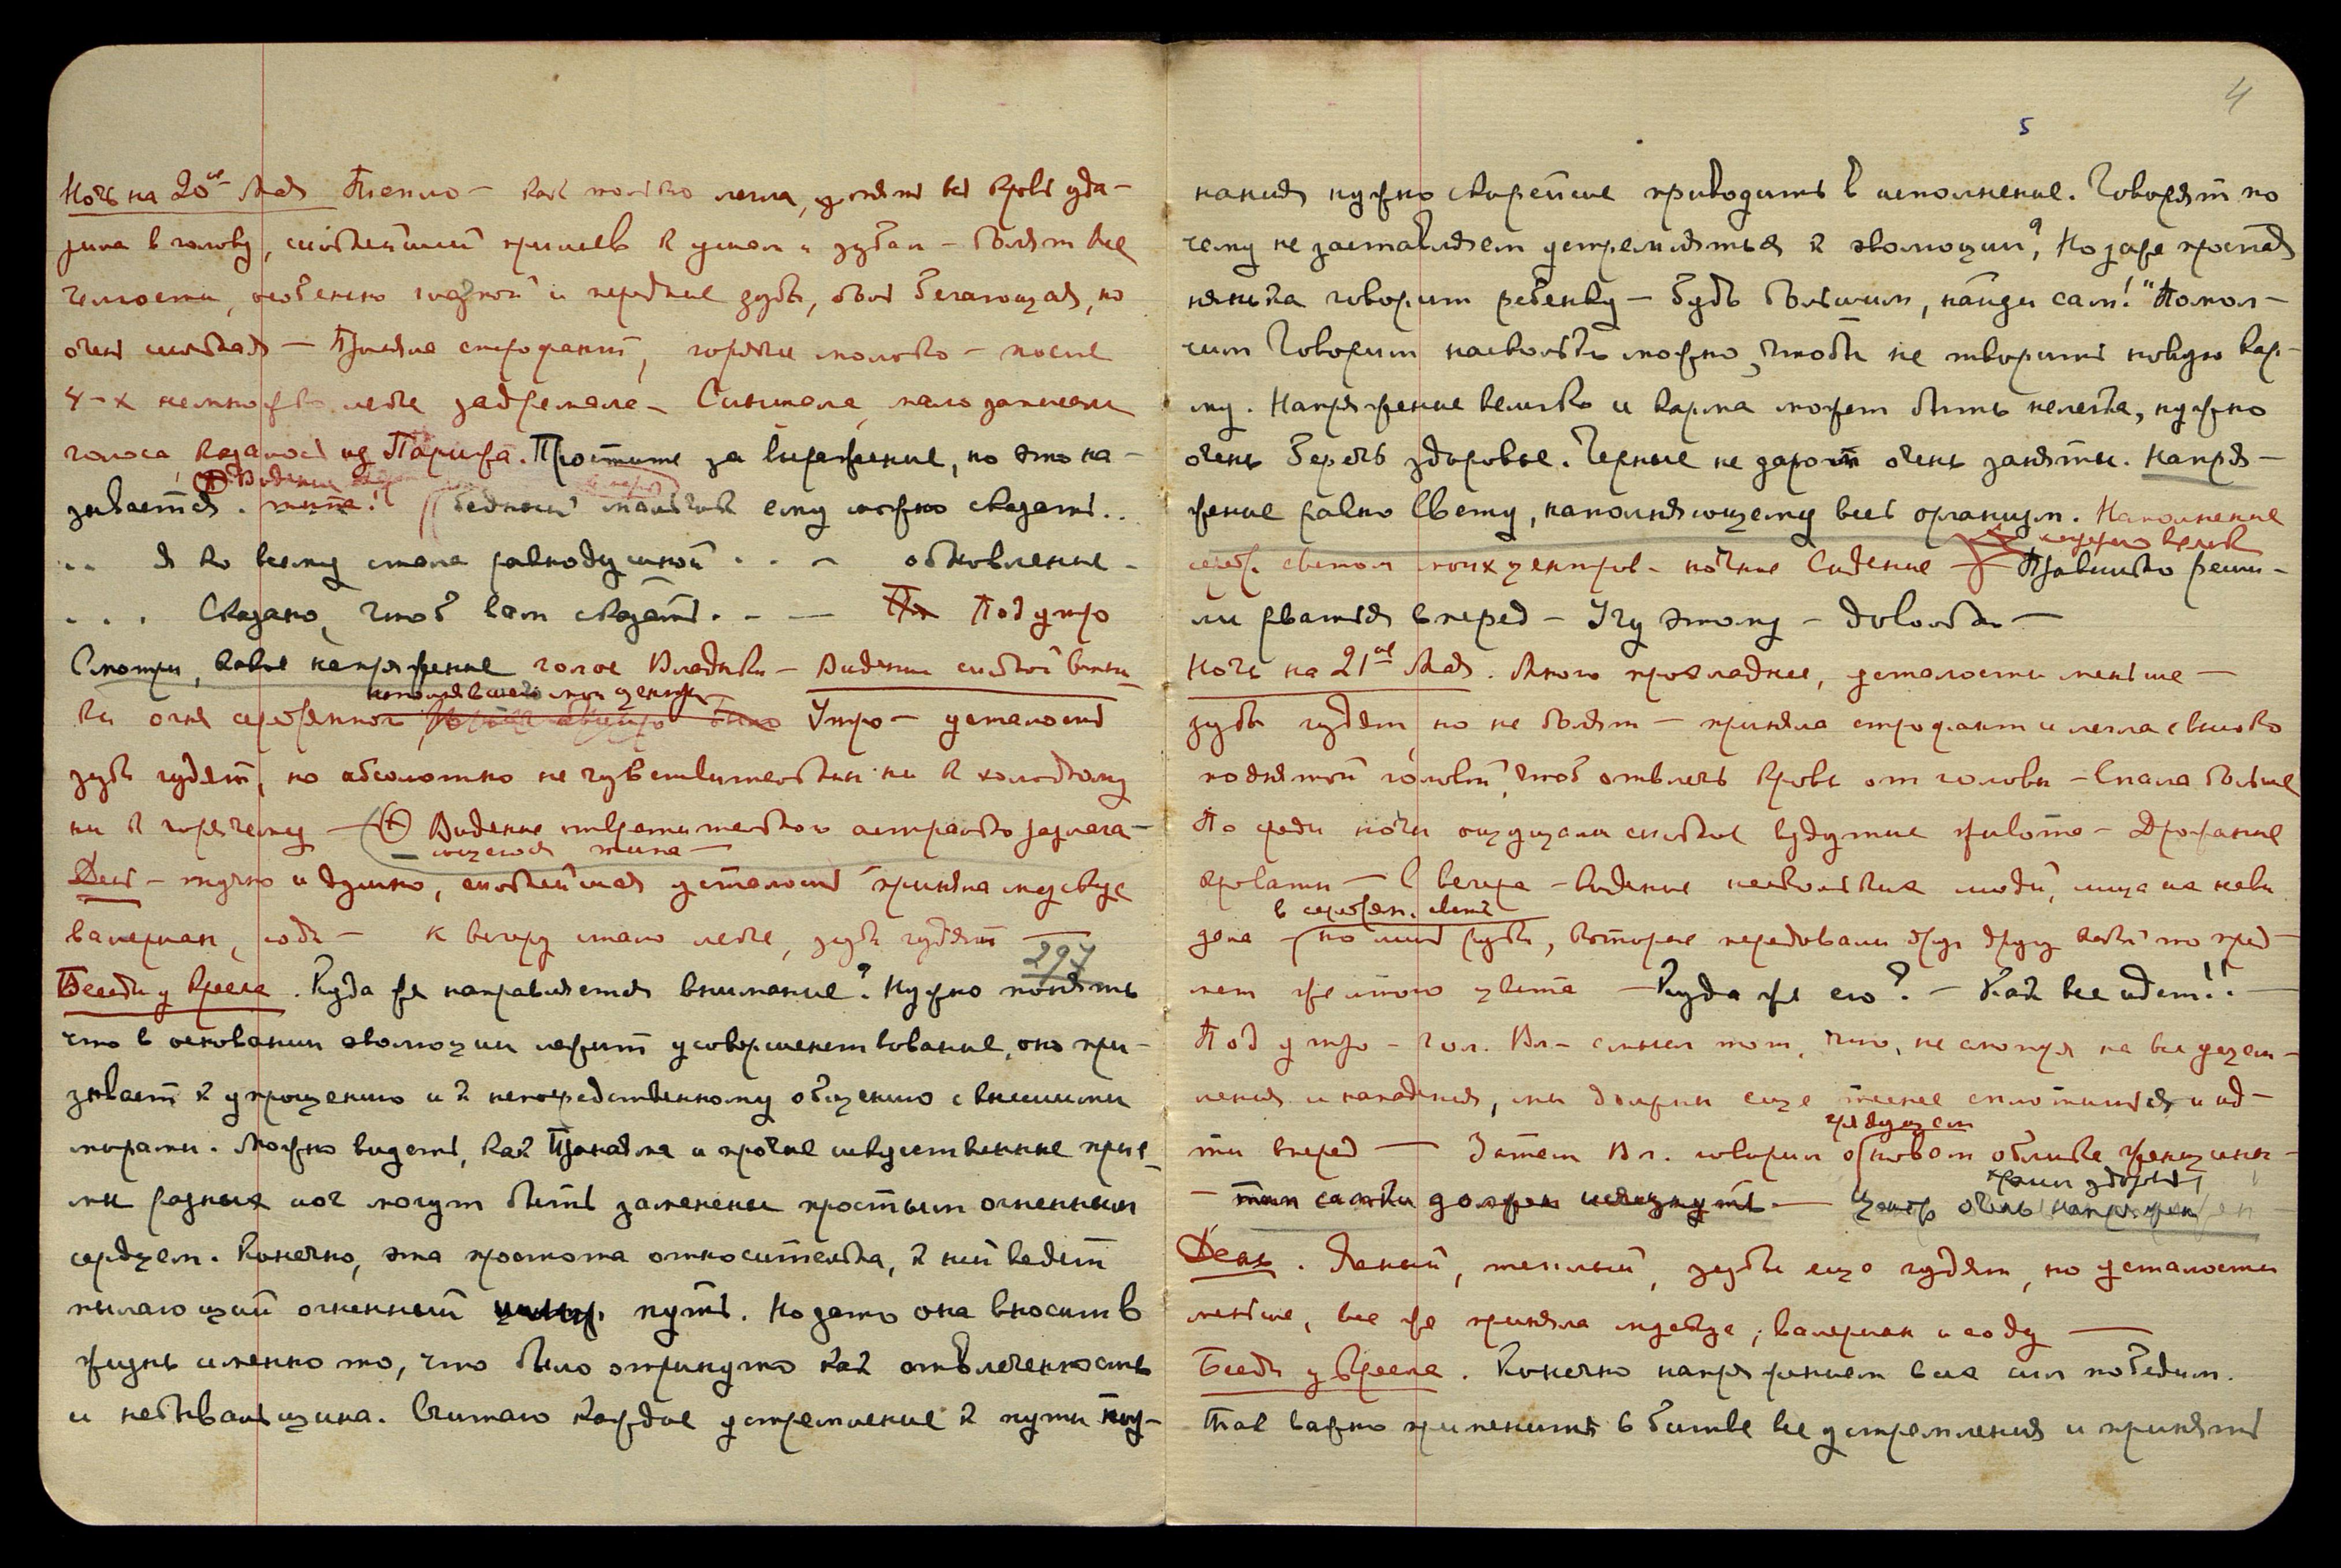 Ночь на 20ое Мая Тепло – как только легла, опять вся кровь уда-
рила в голову, сильнейший прилив к ушам и зубам – болят все
челюсти, особенно и передние зубы, боль бегающая, но
очень сильная – Приняла строфант, горячее молоко – после
4-х немного легче задремала – Слышала, мало запомнила
голоса, казалось из Парижа. Простите за выражение, но это на-
зывается. типа! бедный мальчик ему можно сказать..
.. я ко всему стала равнодушной . . – обновление –
. . . Сказано, чтоб вам сказать. – – Под утро
Смотри, какое напряжение голос Владыки – Видение сильной вспыш-
наполнявшего мои центры
ки огня серебряного было Утро – усталость
зубы гудят, но абсолютно не чувствительны ни к холодному
ни к горячему – (+) Видение отвратительного астрального разлага-
ющегося типа –
День – тучно и душно, сильнейшая усталость приняла мускус
валериан, соды – к вечеру стало легче, зубы гудят
297
Беседа у Кресла. Куда же направляется внимание? Нужно понять
что в основании эволюции лежит усовершенствование, оно при-
зывает к упрощению и к непосредственному общению с высшими
мирами. Можно видеть, как Пранаяма и прочие искусственные прие-
мы разных йог могут быть заменены простым огненным
сердцем. Конечно, эта простота относительна, к ней ведет
пылающий огненный путь. Но зато она вносит в
жизнь именно то, что было отринуто как отвлеченность
и небывальщина. Считаю каждое устремление к пути
4
5
нания нужно скорейше приводить в исполнение. Говорят по
чему не заставляем устремляться к эволюции? Но даже простая
нянька говорит ребенку – будь большим, найди сам! "Помол-
чим Говорим насколько можно, чтобы не творить новую кар-
му. Напряжение велико и карма может быть нелегка, нужно
очень беречь здоровье. Черные не даром очень заняты. Напря-
жение равно Свету, наполняющему весь организм. Наполнение
сереб. светом моих центров – ночные Сидение Правильно реши-
ли рваться вперед – Учу этому – довольно –
Ночь на 21ое Мая. Много прохладнее, усталости меньше –
зубы гудят, но не болят – приняла строфант и легла с высоко
поднятой головой, чтоб отвлечь кровь от головы – Спала больше
По среди ночи ощущали сильное вздутие живота – Дрожание
кровати – С вечера – видение нескольких людей, лица не неви
в серебрян. свете
дела – руки, которые передовали друг другу какой то пред-
мет желтого цвета – Куда же его? – Как все идет!! –
Под утро – Гол. Вл – смысл тот, что, не смотря на все ущем-
ления и нападения, мы должны еще теснее сплотиться и ид-
грядущем
ти вперед – Затем Вл. говорил о новом облике женщины –
храни здоровье
– тип самки должен исчезнуть. – Центр очень напряжен
День. Ясный, теплый, зубы еще гудят, но усталости
меньше, все же приняла мускус, валериан и соду –
Беседа у Кресла. Конечно напряжением всех сил победим.
Так важно применить в битве все устремления и принять